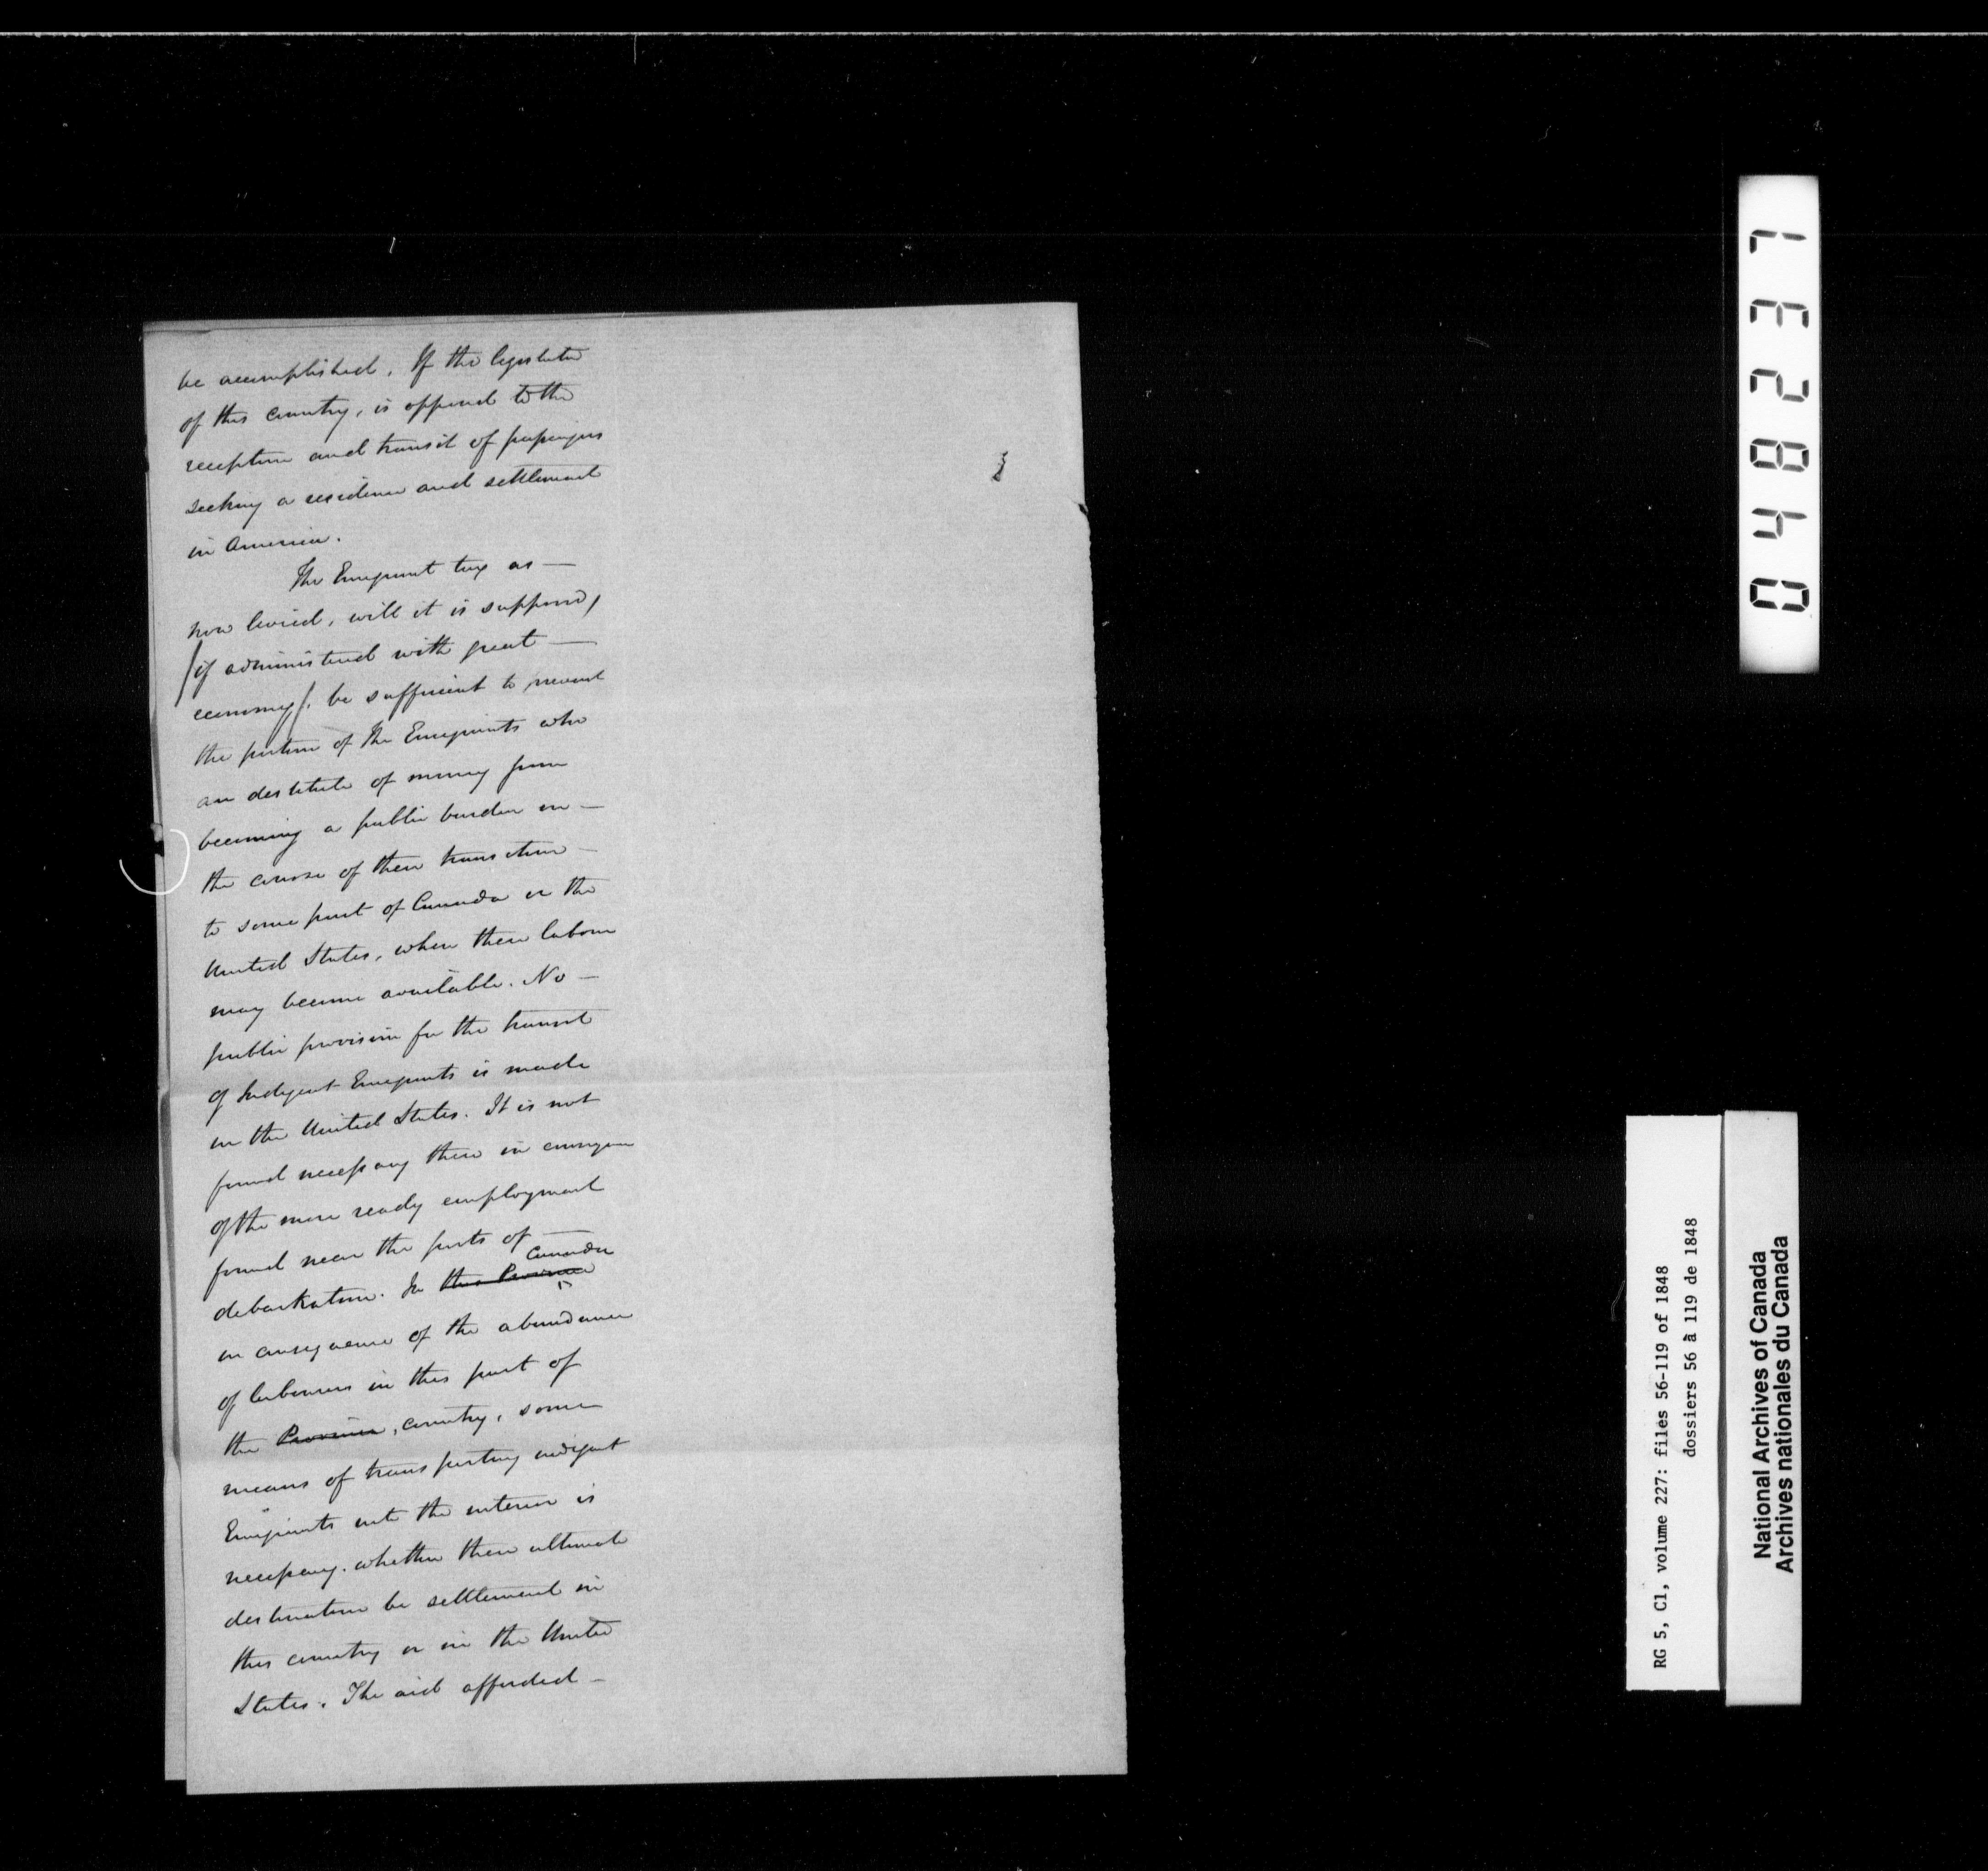 be accomplished. If the legislature
of this country, is opposed to the
reception and transit of passengers
seeking a residence and settlement
in America.
The Emigrant tax as —
now levied, will it is supposed,
(if administered with great —
economy), be sufficient to prevent
the portion of the Emigrants who
are destitute of money from
becoming a public burden in —
the course of their transition —
to some part of Canada or the
United States, where their labour
may become available. No —
public provision for the transit
of Indigent Emigrants is made
in the United States. It is not
found necessary there in consequence
of the more ready employment
found near the ports of —
debarkation. In this Province Canada
in consequence of the abundance
of labourers in this part of
the Province, country, some
means of transporting indigent
Emigrants into the interior is
necessary. whether their ultimate
destination be settlement in
this country or in the United
States. The aid afforded —
042837
RG 5, C1, volume 227: files 56-119 of 1848
dossiers 56 à 119 de 1848
National Archives of Canada
Archives nationales du Canada